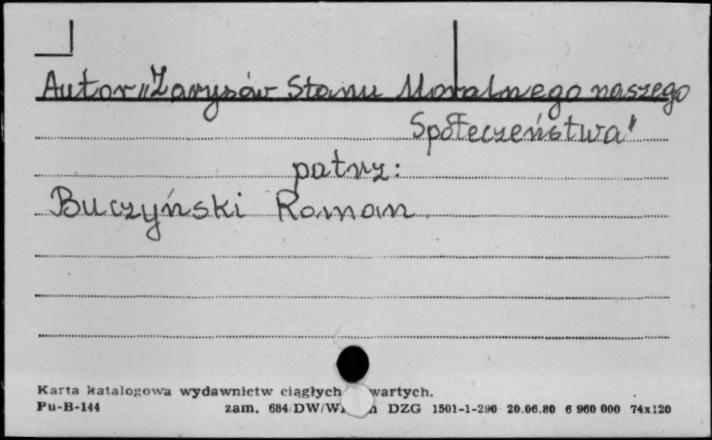 Autor „Zarysów Stanu Moralnego naszego
Społeczeństwa"
patrz:
Buczyński Roman
Karta katalogowa wydawnictw ciągłych wartych.
Pu-B-144
zam. 684/DW/W DZG 1501-1-290 20.06.80 6 960 000 74x120